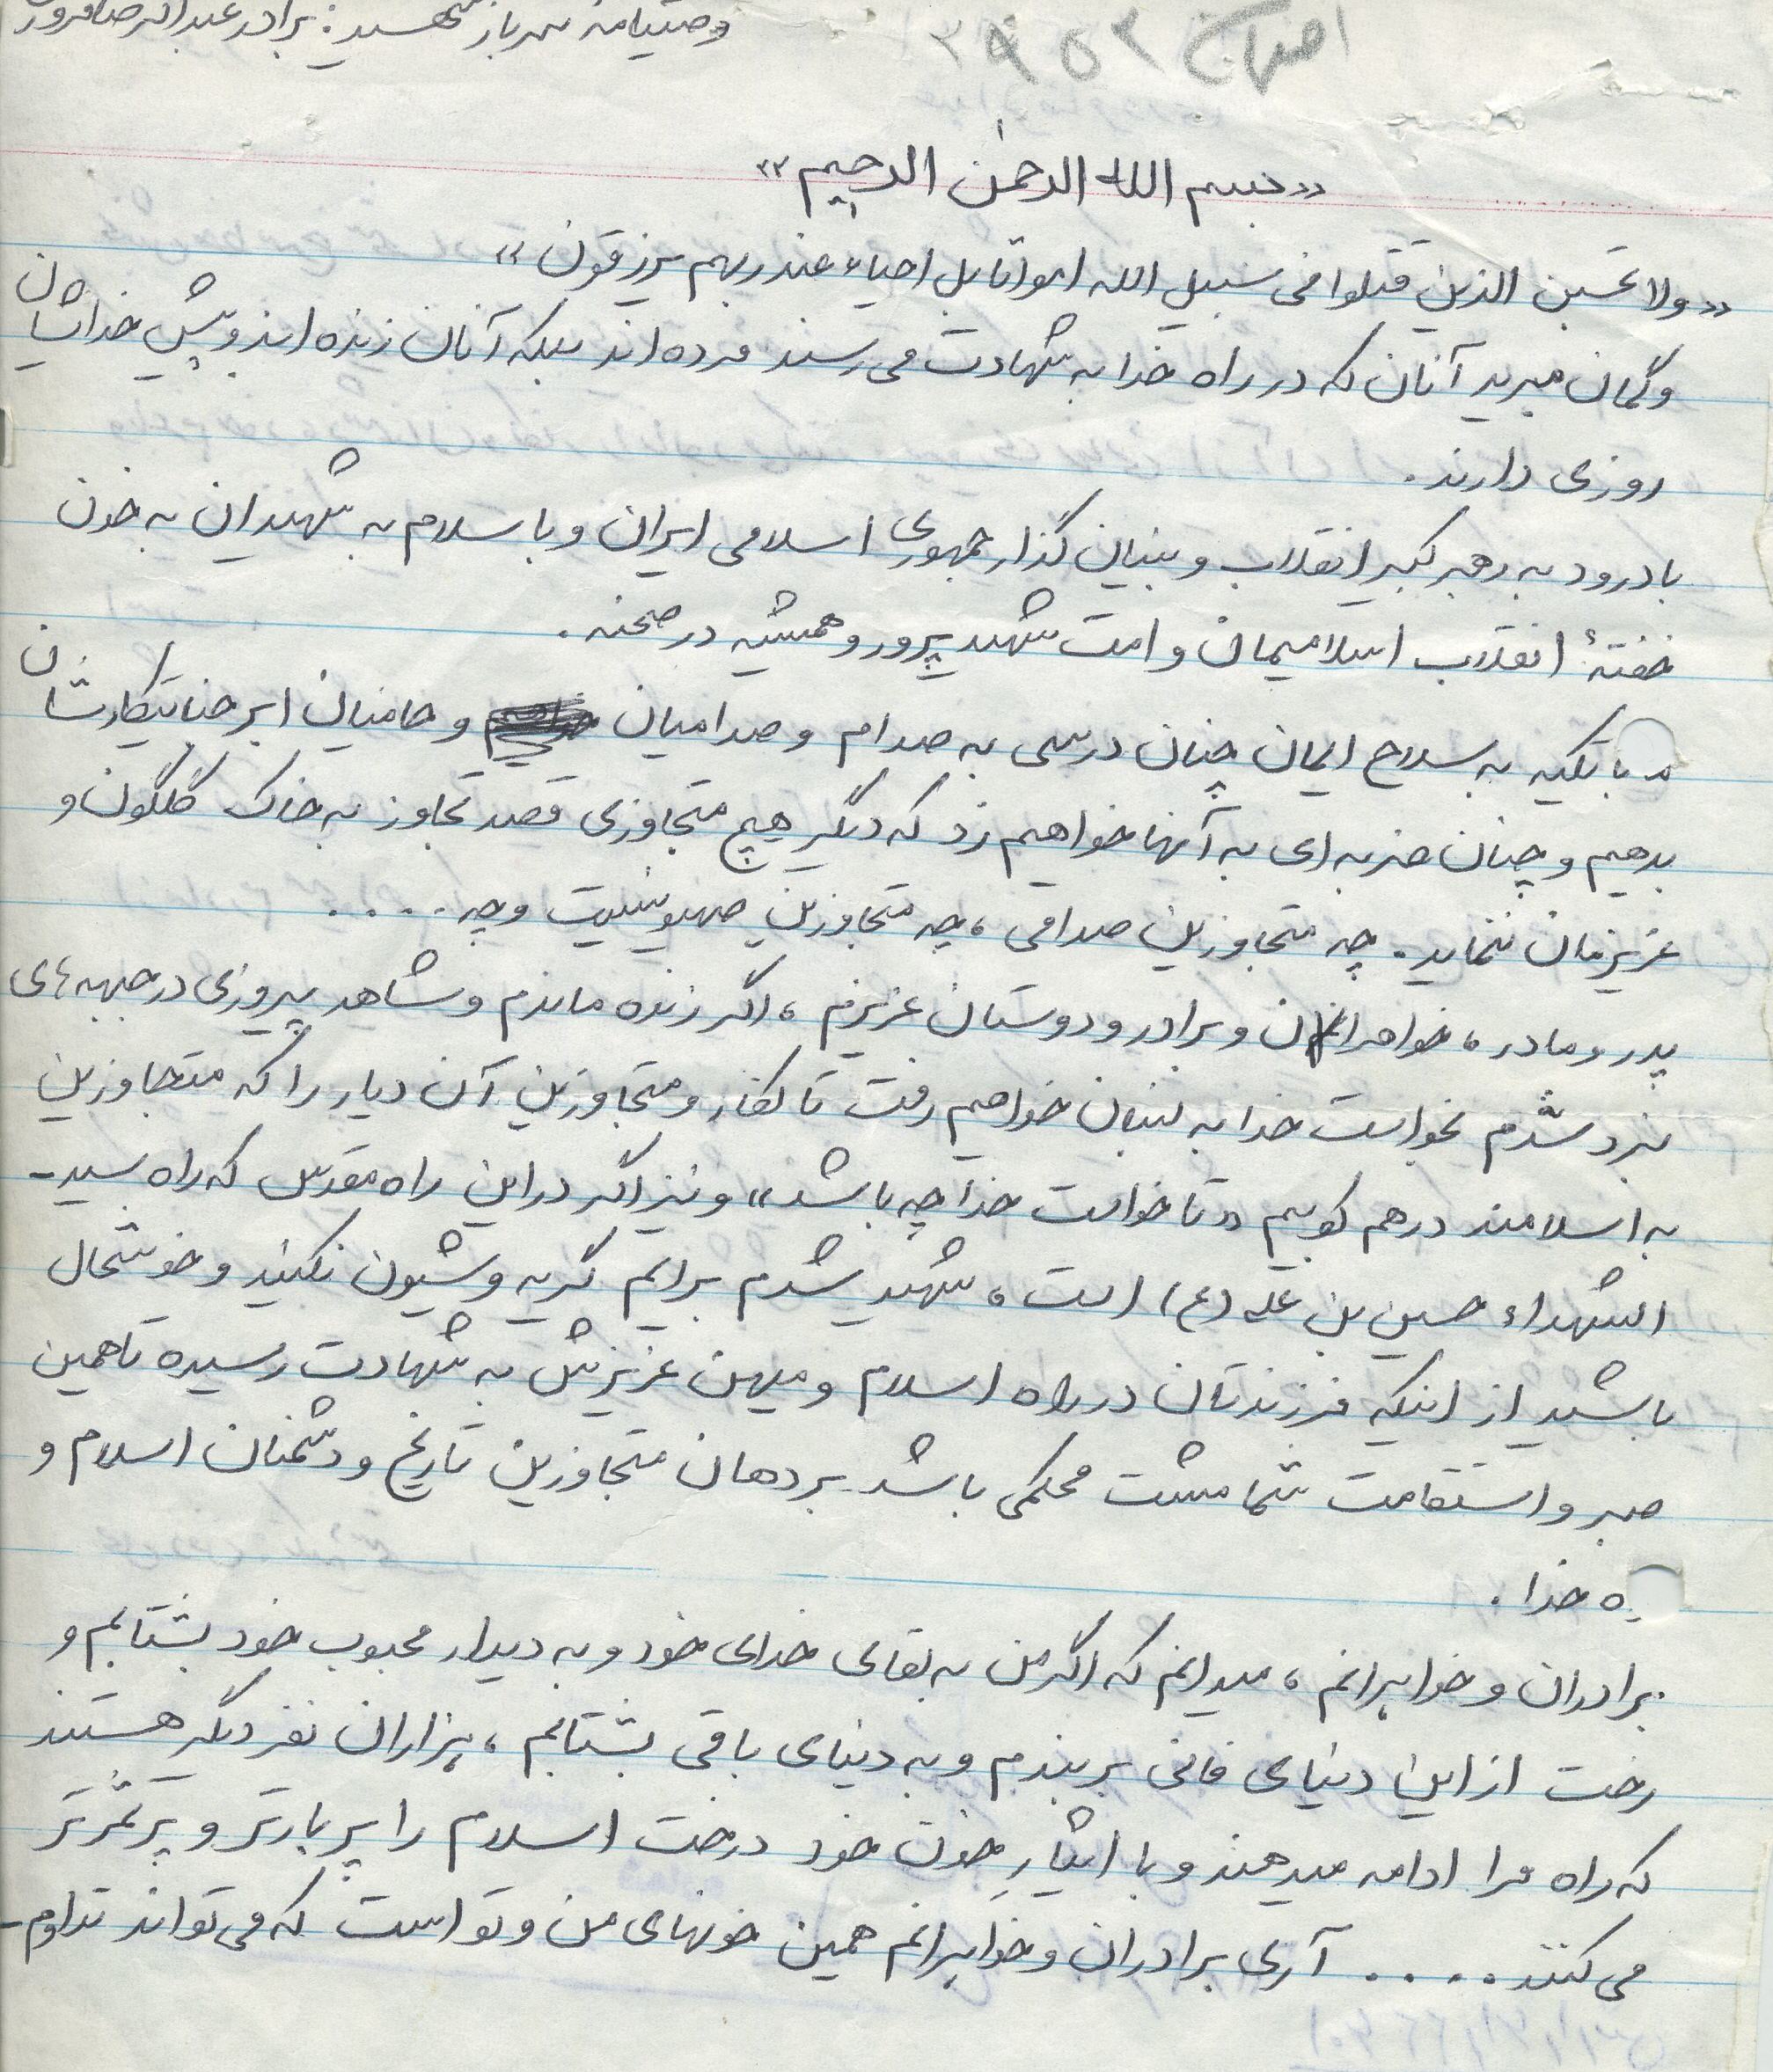 وصیتنامه سرباز شهید: برادر عبدالرضا
اصفهان ۳۹۵۲
«بسم الله الرحمن الرحیم»
«ولا تحسبن الذین قتلوا فی سبیل الله امواتا بل احیاء عند ربهم یرزقون»
و گمان مبرید آنان که در راه خدا به شهادت می رسند مرده اند بلکه آنان زنده اند و پیش خدایشان
روزی دارند.
با درود به رهبر کبیر انقلاب و بنیان گذار جمهوری اسلامی ایران و با سلام به شهیدان به خون
خفتهٔ انقلاب اسلامیمان و امت شهید پرور و همیشه در صحنه.
با تکیه به سلاح ایمان چنان درسی به صدام و صدامیان و حامیان ابر جنایتکارشان
بدهیم و چنان ضربه ای به آنها خواهیم زد که دیگر هیچ متجاوزی قصد تجاوز به خاک گلگون و
عزیزمان ننماید. چه متجاوزین صدامی، چه متجاوزین صهیونیست و چه ....
پدر و مادر، خواهران و برادر و دوستان عزیزم، اگر زنده ماندم و شاهد پیروزی در جبهه های
نبرد شدم بخواست خدا به لبنان خواهیم رفت تا کفار و متجاوزین آن دیار را که متجاوزین
به اسلامند درهم کوبیم «تا خواست خدا چه باشد» و نیز اگر در این راه مقدس که راه سید-
الشهداء حسین بن علی (ع) است، شهید شدم برایم گریه و شیون نکنید و خوشحال
باشید از اینکه فرزندتان در راه اسلام و میهن عزیزش به شهادت رسیده تا همین
صبر و استقامت شما مشت محکمی باشد بر دهان متجاوزین تاریخ و دشمنان اسلام و
خدا.
برادران و خواهرانم، میدانم که اگر من به لقای خدای خود و به دیدار محبوب خود بشتابم و
رخت از این دنیای فانی بر بندم و به دنیای باقی بشتابم، هزاران نفر دیگر هستند
که راه مرا ادامه میدهند و با ایثارِ خون خود درخت اسلام را پر بارتر و پر ثمرتر
می کنند .... آری برادران و خواهرانم همین خونهای من و تو است که می تواند تداوم-